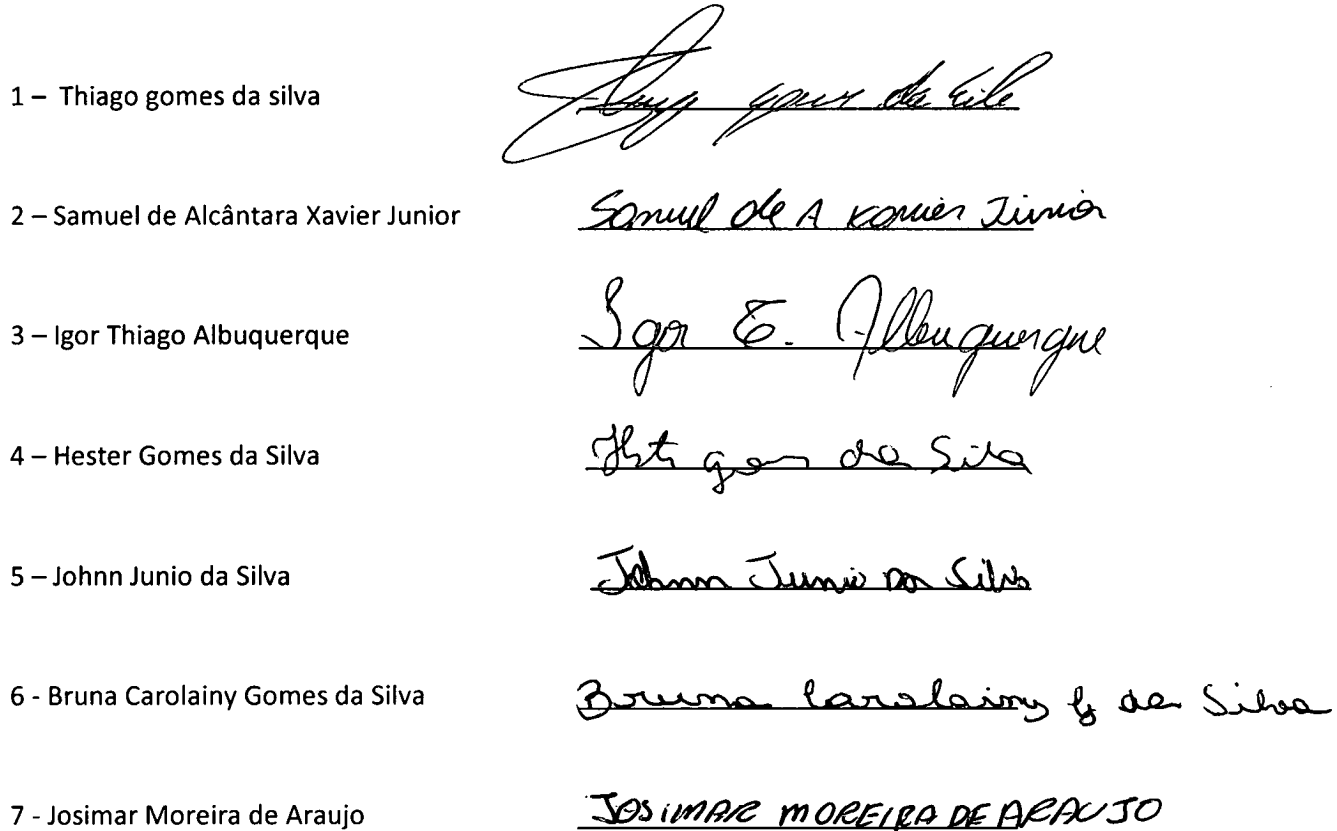 1 – Thiago gomes da silva gomes da Silva
2 – Samuel de Alcântara Xavier Junior Samuel de A Xavier Junior
3 – Igor Thiago Albuquerque Igor T. Albuquerque
4 – Hester Gomes da Silva gomes da Silva
5 – Johnn Junio da Silva Johnn Junio da Silva
6 - Bruna Carolainy Gomes da Silva Bruna Carolainy G da Silva
7 - Josimar Moreira de Araujo JOSIMAR MOREIRA DE ARAUJO